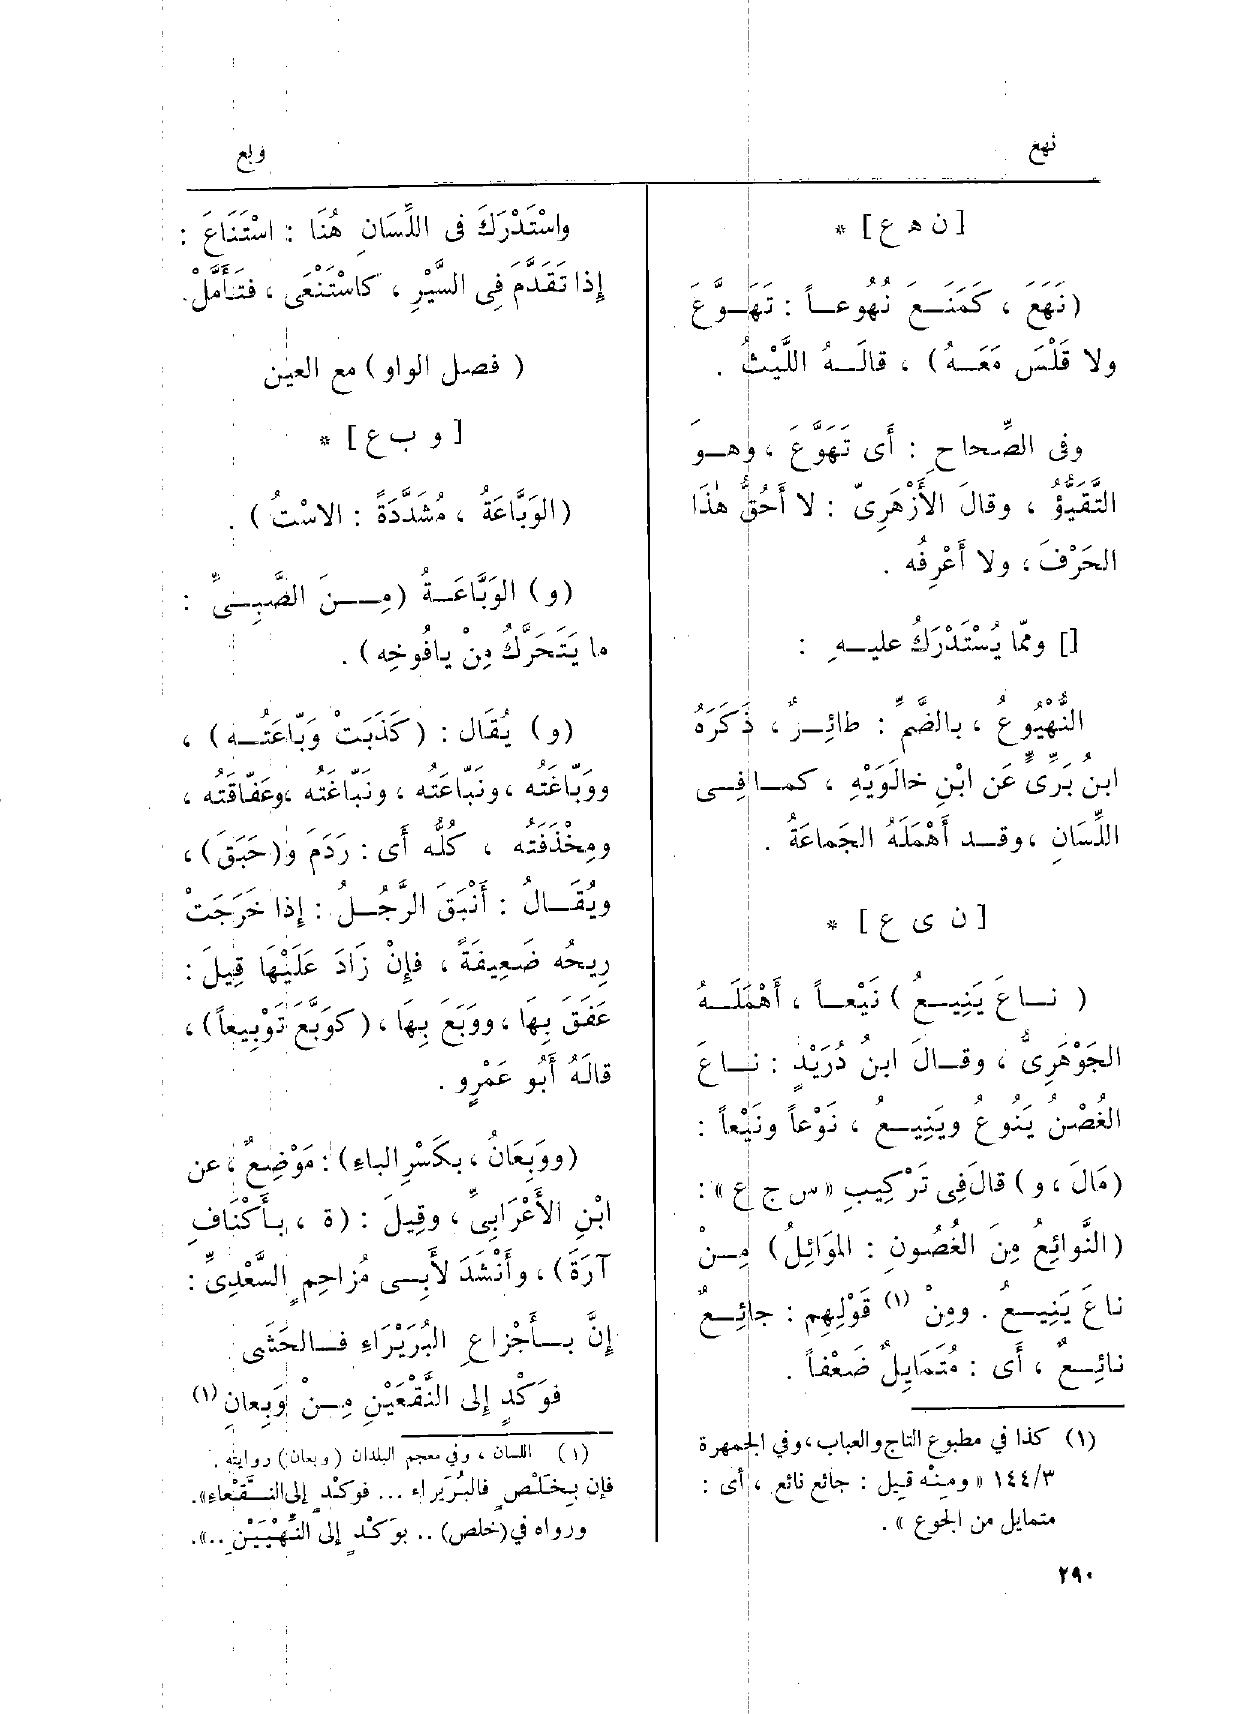 نهع
وبع
[ ن ه ع ] *
(نَهَعَ ، كَمَنَـعَ نُهُوعـاً : تَهَـوَّعَ
ولا قَلْسَ مَعَـهُ) ، قالَـهُ اللَّيْثُ .
وفى الصِّحاحِ : أَى تَهَوَّعَ ، وهـو
التَّقَيُّؤُ ، وقالَ الأَزْهَرِىّ : لا أَحُقُّ هٰذَا
الحَرْفَ ، ولا أَعْرِفُه .
[] وممّا يُسْتَدْرَكُ عليـهِ :
النُّهْيُوعُ ، بالضَّمِّ : طائِـرٌ ، ذَكَرَهُ
ابنُ بَرِّىٍّ عَن ابْنِ خالَوَيْهِ ، كمـا فِـى
اللِّسَانِ ، وقـد أَهْمَلَهُ الجَماعَةُ .
[ ن ى ع ] *
( نـاعَ يَنِيـعُ ) نَيْعـاً ، أَهْمَلَـهُ
الجَوْهَرِىُّ ، وقـالَ ابنُ دُرَيْدٍ : نـاعَ
الغُصْنُ يَنُوعُ ويَنِيـعُ ، نَوْعاً ونَيْعاً :
(مَالَ ، و) قالَ فِى تَرْكِيبِ «س ج ع» :
(النَّوائِعُ مِنَ الغُصُونِ : المَوَائِلُ) مِـنْ
ناعَ يَنِيـعُ . ومِنْ (١) قَوْلِهِم : جائِـعٌ
نائِـعٌ ، أَى : مُتَمَايِلٌ ضَعْفاً .
(١) كذا في مطبوع التاج والعباب ، وفي الجمهرة
١٤٤/٣ « ومنه قيل : جائع نائع ، أى :
متمايل من الجوع » .
٢٩٠
واسْتَدْرَكَ فى اللِّسَانِ هُنَا : اسْتَنَاعَ :
إذا تَقَدَّمَ فِى السَّيْرِ ، كاسْتَنْعَى ، فتَأَمَّلْ .
( فصل الواو ) مع العين
[ و ب ع ] *
(الوَبَّاعَةُ ، مُشَدَّدَةً : الاسْتُ) .
(و) الوَبَّاعَـةُ (مِـنَ الصَّبِـىِّ :
ما يَتَحَرَّكُ مِنْ يافُوخِه) .
(و) يُقَال : (كَذَبَتْ وَبَّاعَتُـه) ،
ووَبَّاغَتُه ، ونَبّاعَتُه ، ونَبّاغَتُه ، وعَفّاقَتُه ،
ومِخْذَفَتُه ، كُلُّه أَى : رَدَمَ و(حَبَقَ) ،
ويُقَـالُ : أَنْبَقَ الرَّجُـلُ : إذا خَرَجَتْ
رِيحُه ضَعِيفَةً ، فإِنْ زَادَ عَلَيْهَا قِيلَ :
عَفَقَ بِها ، ووَبَعَ بِها ، (كوَبَّعَ تَوْبِيعاً) ،
قالَهُ أَبُو عَمْرٍو .
(ووَبِعَانُ ، بكَسْرِ الباءِ) : مَوْضِعٌ ، عن
ابْنِ الأَعْرَابِىِّ ، وقِيلَ : (ة ، بأَكْنَافِ
آرَةَ) ، وأَنْشَدَ لأَبِـى مُزاحِمٍ السَّعْدِىِّ :
إنَّ بـأَجْزاعِ البُرَيْرَاءِ فـالحَشَى
فوَكْدٍ إلى النَّقْعَيْنِ مِـنْ وَبِعانِ (١)
(١) اللسان ، وفي معجم البلدان (وبعان) روايته .
فإن بِخَلْصٍ فالبُرَيراء ... فوَكْدٍ إلى النَّقْعاء» .
ورواه في (خلص) .. بوَكْدٍ إلى النَّهْيَيْن ..» .